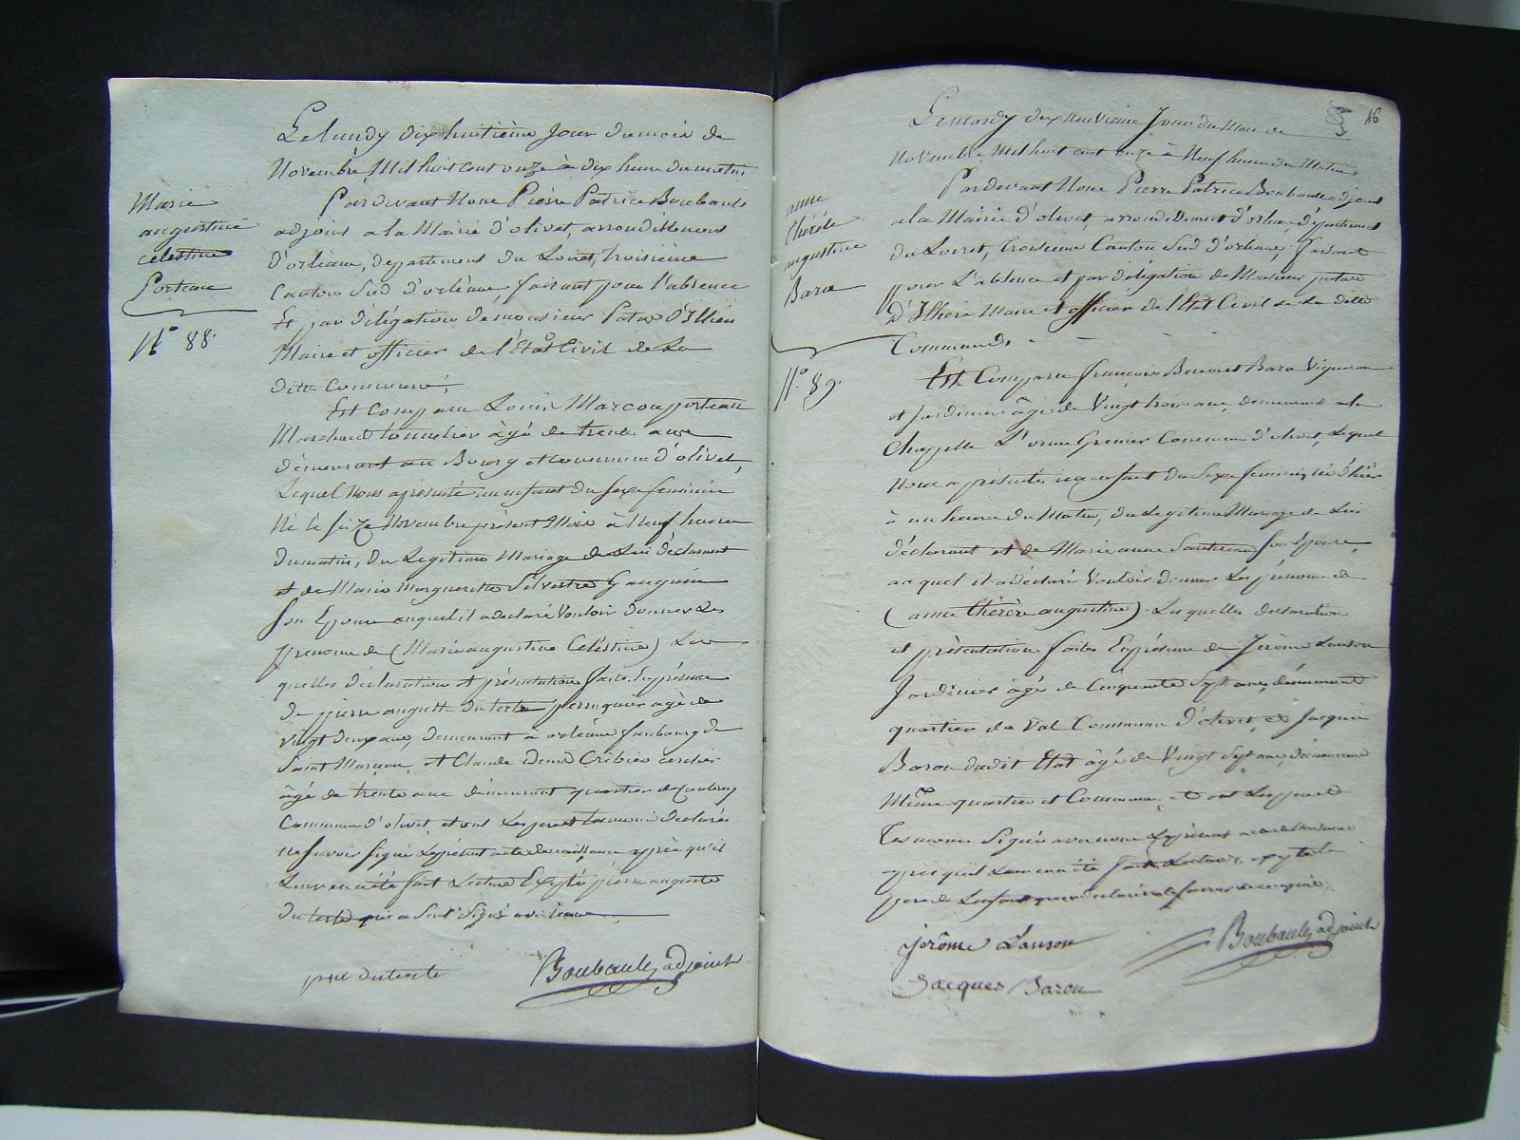 Marie
augustine
celestine
Porteau
N° 88.
Le lundy dix huitième Jour du mois de
Novembre, Mil huit cent onze à dix heure du matin,
Pardevant Nous Pierre Patrice Boubault
adjoint a la Mairie d'olivet, arrondissement
d'orléans, departement du Loiret, troisième
Canton Sud d'orléans, faisant pour l'absence
Et par délégation de monsieur Patas D'Illiers
Maire et officier de l'État Civil de La
dite commune,
Est comparu Louis Marcou porteau
Marchand tonnelier âgé de trente ans
demeurant au Bourg et commune d'olivet,
Lequel Nous a présenté un enfant du sexe feminin
Né le seize Novembre présent Mois à Neuf heures
du matin, du Legitime Mariage de Lui déclarant
et de Marie Marguerite Silvestre Gauguin
Son Epouse auquel il a declaré Vouloir donner Les
prenoms de (Marie augustine Celéstine) Les
quelles déclaration et présentation faites En présence
de pierre auguste du tertre perruquier âgé de
vingt deux ans, demeurant à orléans faubourg de
Saint Marceau, et Claude Cribier cerclier
âgé de trente ans demeurant quartier de
Commune d'olivet, et ont Les pere et temoins déclarés
ne savoir signer Le présent acte de naissance après qu'il
Leur en a été fait Lecture Excepté pierre auguste
du tertre qui a Sout Signé avec nous
Boubault adjoint
16
anne
thérèse
augustine
Baron
N° 89.
Le mardy dix neuvieme Jour du Mois de
Novembre Mil huit cent onze à Neuf heures du Matin,
Pardevant Nous Pierre Patrice Boubault adjoint
a la Mairie d'olivet, arrondissement d'orléans, département
du Loiret, troisieme Canton Sud d'orléans, faisant
pour L'absence et par délégation de Monsieur patas
D'Illiers Maire et officier de l'État Civil de La dite
Commune.
Est Comparu françois Baron Vigneron
et Jardinier âgé de Vingt trois ans, demeurant a la
Chapelle Commune d'olivet, Lequel
Nous a présenté un enfant du Sexe feminin, né d'hier
à une heure du Matin, du Legitime Mariage de Lui
déclarant et de Marie anne Son Epouse,
auquel il a déclaré Vouloir donner Les prénoms de
(anne thérèse augustine) Lesquelles declaration
et présentation faites En présence de Jérôme Lanson
Jardinier âgé de Cinquante Sept ans, demeurant
quartier du Val Commune d'olivet, et Jacques
Baron dudit État âgé de Vingt Sept ans, demeurant
Même quartier et Commune, et ont Les
Temoins Signés avec nous Le présent acte de naissance
après qu'il Leur en a été fait Lecture, excepté le
pere de L'enfant qui a declaré ne savoir
Jerôme Lanson
Boubault adjoint
Jacques Baron